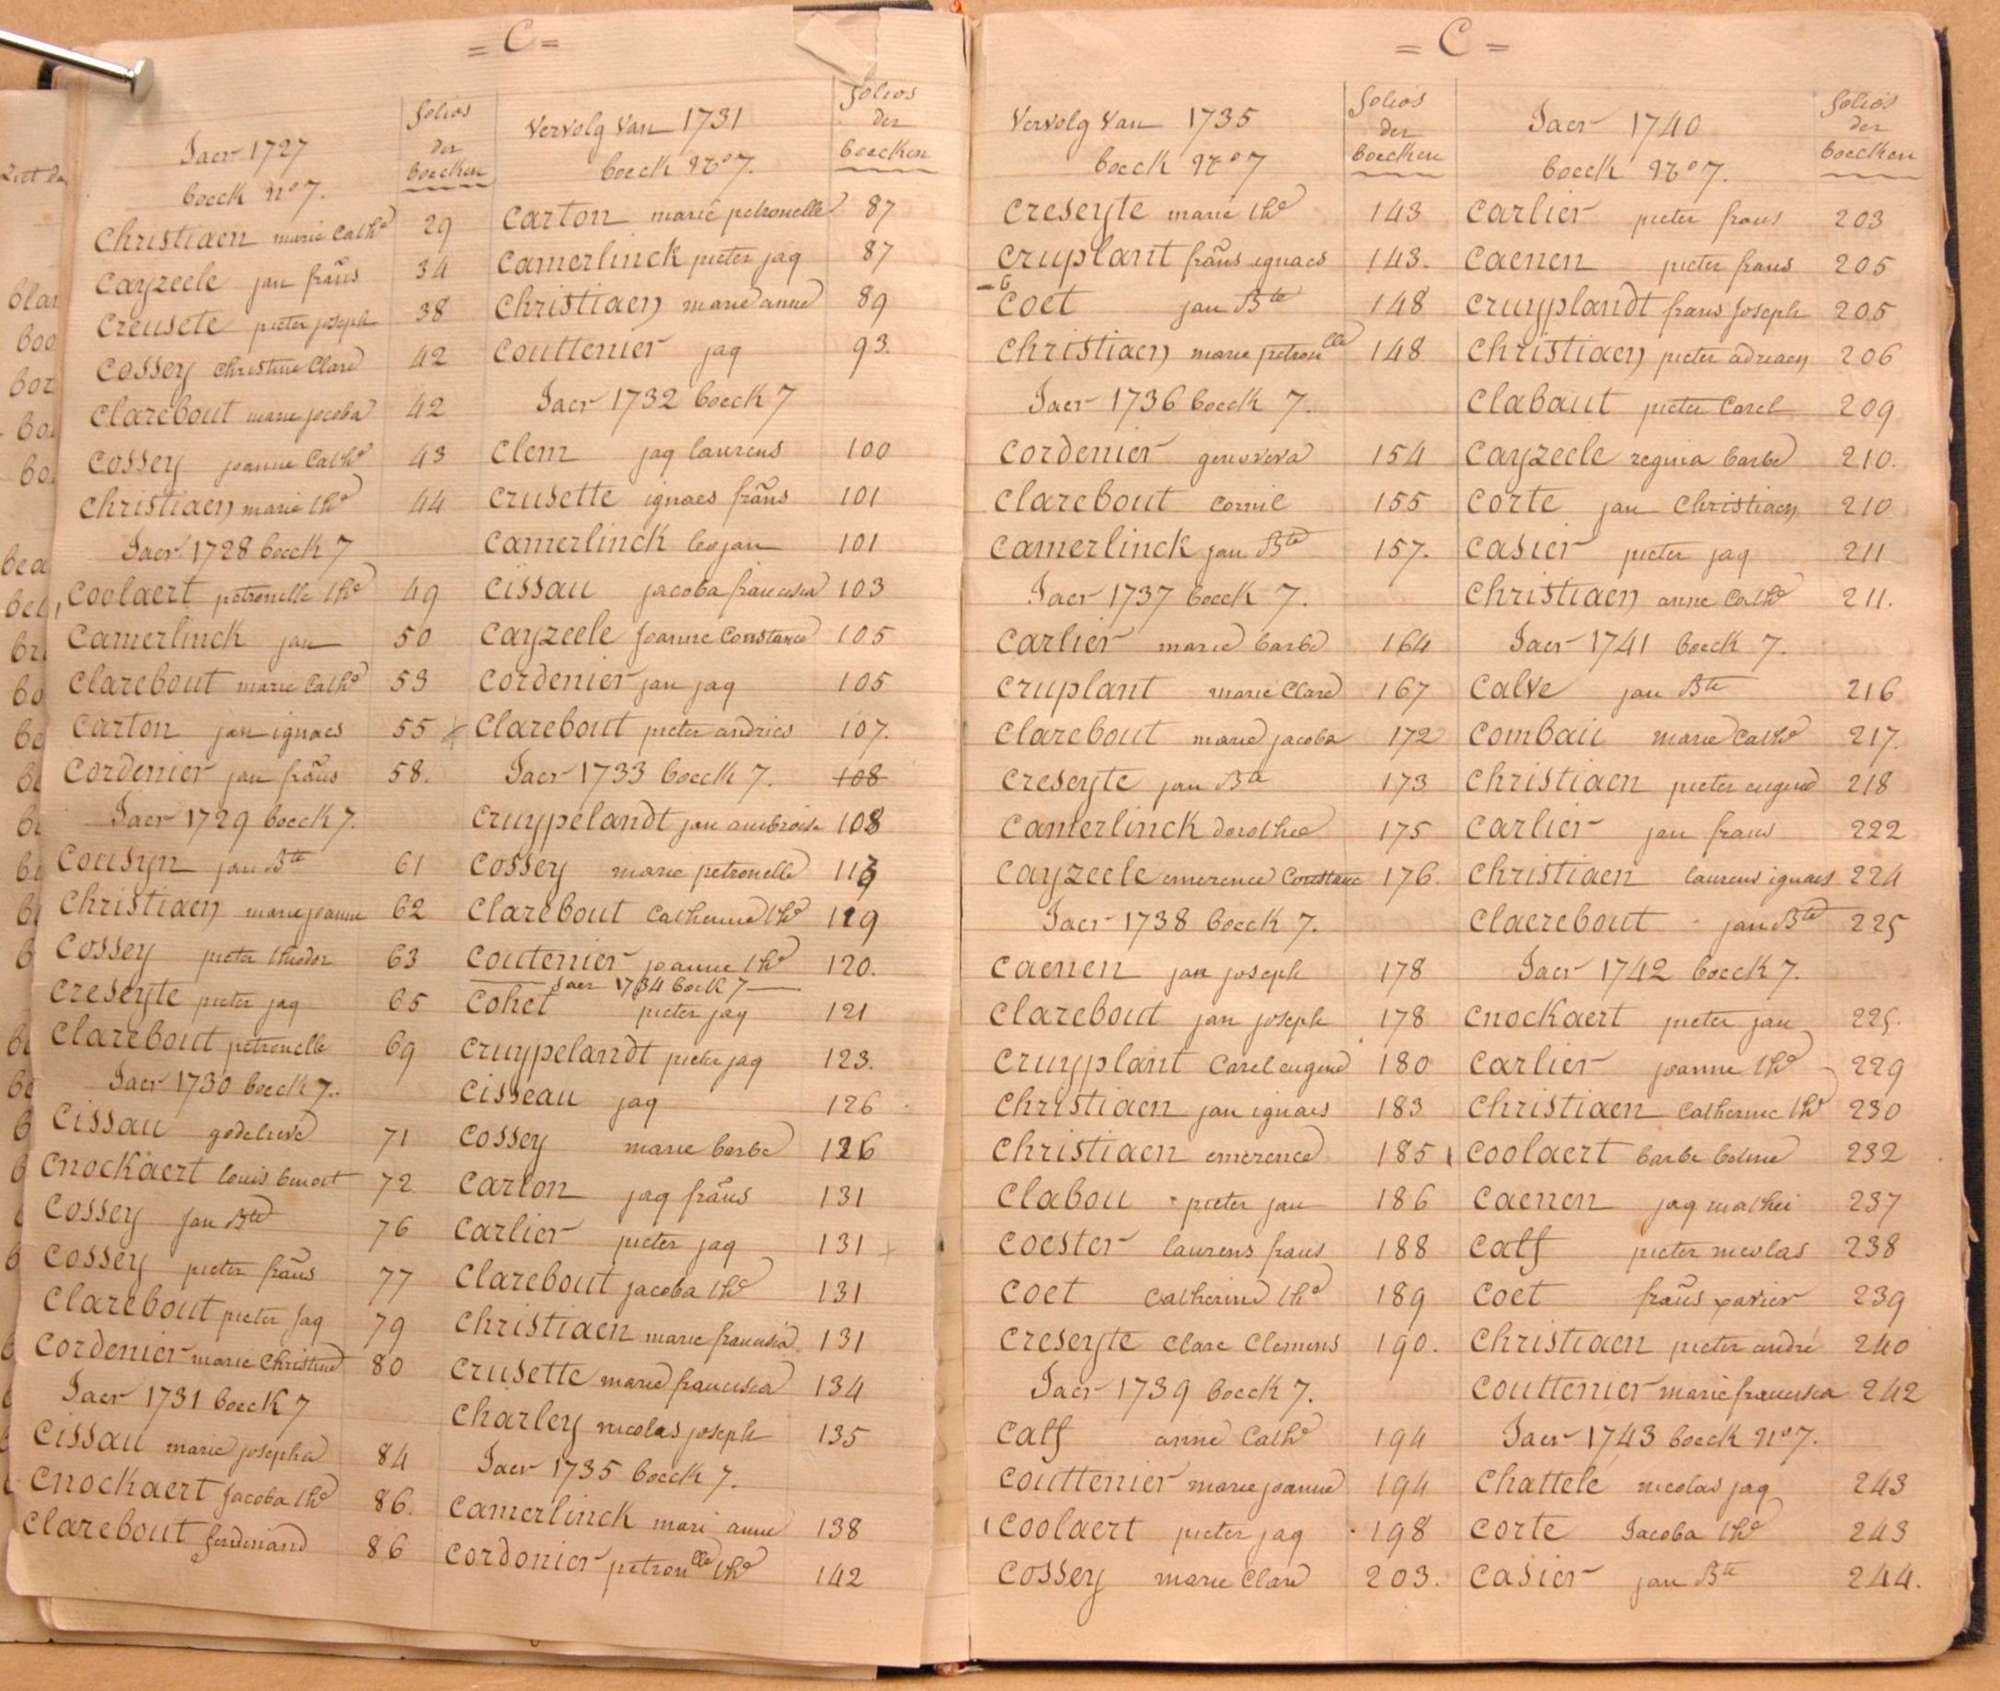 = C =
Jaer 1727
boeck no 7.
folios
der
boecken
Christiaen marie Cathe 29
Cayzeele jan frans 34
Creusete pieter joseph 38
Cossey Christine Clare 42
Clarebout marie jacoba 42
Cossey joanne Cathe 43
Christiaen marie the 44
Jaer 1728 boeck 7
Coolaert petronelle the 49
Camerlinck jan 50
Clarebout marie Cathe 53
Carton jan ignaes 55
Cordenier jan frans 58.
Jaer 1729 boeck 7.
Cousyn jan Bte 61
Christiaen marie joanne 62
Cossey pieter theodor 63
Creseyte pieter jaq 65
Clarebout petronelle 69
Jaer 1730 boeck 7.
Cissau godelieve 71
Cnockaert louis benoit 72
Cossey jan Bte 76
Cossey pieter frans 77
Clarebout pieter jaq 79
Cordenier marie Christine 80
Jaer 1731 boeck 7
Cissau marie josepha 84
Cnockaert Jacoba the 86.
Clarebout ferdinand 86
Vervolg Van 1731
boeck No 7.
folios
der
boecken
Carton marie petronelle 87
Camerlinck pieter jaq 87
Christiaen marie anne 89
Couttenier jaq 93.
Jaer 1732 boeck 7
Clem jaq laurens 100
Crusette ignaes frans 101
Camerlinck leo jan 101
Cissau jacoba francisca 103
Cayzeele Joanne Constance 105
Cordenier jan jaq 105
Clarebout pieter andries 107.
Jaer 1733 boeck 7. 108
Cruypelandt jan ambroise 108
Cossey marie petronelle
Clarebout Catherine the 119
Coutenier joanne the 120.
Jaer 1734 boeck 7
Cohet pieter jaq 121
Cruypelandt pieter jaq 123.
Cisseau jaq 126
Cossey marie barbe 126
Carlon jaq frans 131
Carlier pieter jaq 131
Clarebout jacoba the 131
Christiaen marie francisca 131
Crusette marie francisca 134
Charley nicolas joseph 135
Jaer 1735 boeck 7.
Camerlinck mari anne 138
Cordonier petronlle the 142
= C =
Vervolg Van 1735
boeck No 7
folios
der
boecken
Creseyte marie the 143
Cruplant frans ignaes 143.
Coet jan Bte 148
Christiaen marie petronlle 148
Jaer 1736 boeck 7.
Cordenier genoveva 154
Clarebout Cornil 155
Camerlinck jan Bte 157.
Jaer 1737 boeck 7.
Carlier marie barbe 164
Cruplant marie Clare 167
Clarebout marie jacoba 172
Creseyte jan Bte 173
Camerlinck dorothee 175
Cayzeele emerence Constance 176.
Jaer 1738 boeck 7.
Caenen jan joseph 178
Clarebout jan joseph 178
Cruyplant Carel eugene 180
Christiaen jan ignaes 183
Christiaen emerence 185
Clabou pieter jan 186
Coester laurens frans 188
Coet Catherine the 189
Creseyte Clare Clemens 190.
Jaer 1739 boeck 7.
Calf anne Cathe 194
Couttenier marie joanne 194
Coolaert pieter jaq 198
Cossey marie Clare 203.
Jaer 1740
boeck No 7.
folios
der
boecken
Carlier pieter frans 203
Caenen pieter frans 205
Cruyplandt frans Joseph 205
Christiaen pieter adriaen 206
Clabaut pieter Carel 209
Cayzeele regina barbe 210.
Corte jan Christiaen 210
Casier pieter jaq 211
Christiaen anne Cathe 211.
Jaer 1741 boeck 7.
Calve jan Bte 216
Combau marie Cathe 217.
Christiaen pieter eugene 218
Carlier jan frans 222
Christiaen laurens ignaes 224
Claerebout jan Bte 225
Jaer 1742 boeck 7.
Cnockaert pieter jan 225.
Carlier joanne the 229
Christiaen Catherine the 230
Coolaert barbe 232
Caenen jaq mathei 237
Calf pieter nicolas 238
Coet frans xavier 239
Christiaen pieter andré 240
Couttenier marie francisca 242
Jaer 1743 boeck no 7.
Chattelé nicolas jaq 243
Corte Jacoba the 243
Casier jan Bte 244.